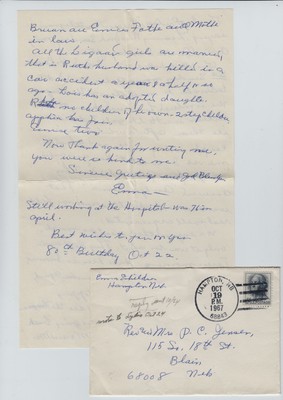 Brian are Connies Father and Mother
in law.
All the Gigaas girls are marred,
that is Ruth husband was killed in a
car accident a year & a half
ago. Lois has an adopted daughter
no children of her own. 2 step children
two
Now Thank again for writing me,
you were so kind to me.
Sincere Greetings and God Bless you
Emma
Still working at the Hospital was 76 in
april.
Best wishes to you on your
80th Birthday Oct 22
Emma Schilder
Hampton Neb.
HAMPTON, NB
OCT
19
P.M.
1967
68843
Rev & Mrs P. C. Jensen,
115 So. 18th St.
Blair
68008 Neb